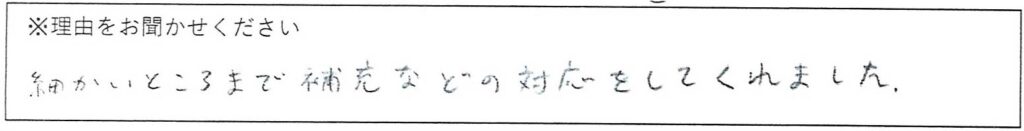 ※理由をお聞かせください
細かいところまで補充などの対応をしてくれました.